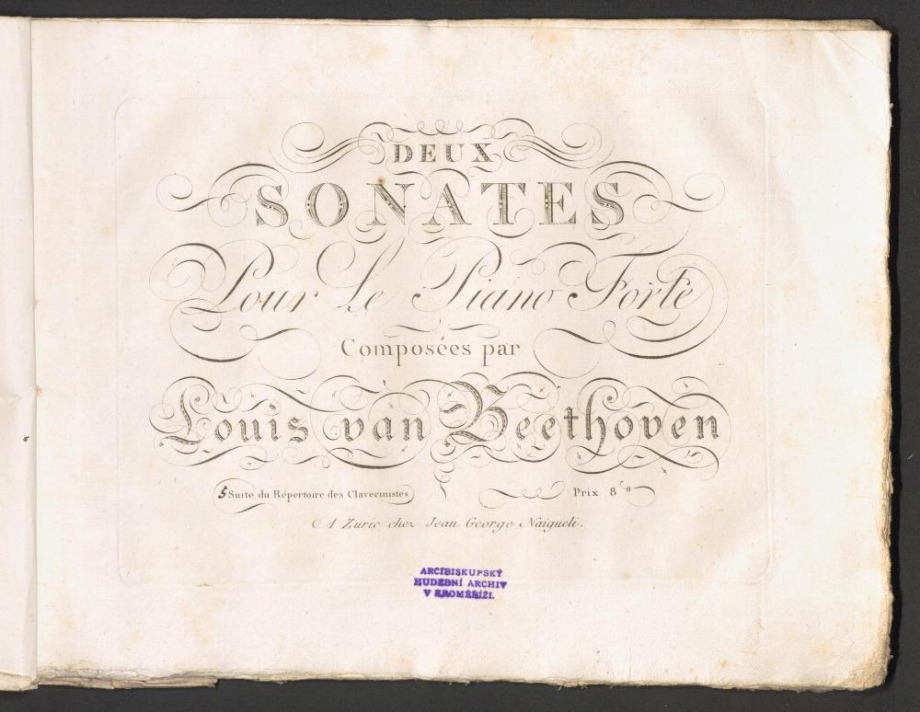 DEUX
SONATES
Pour le Piano Forte
Composées par
Louis van Beethoven
5 Suite du Répertoire des Clavecinistes
Prix 8
A Zuric chez Jean George Naigueli.
ARCIBISKUPSKÝ
HUDEBNÍ ARCHIV
V KROMĚŘÍŽI.